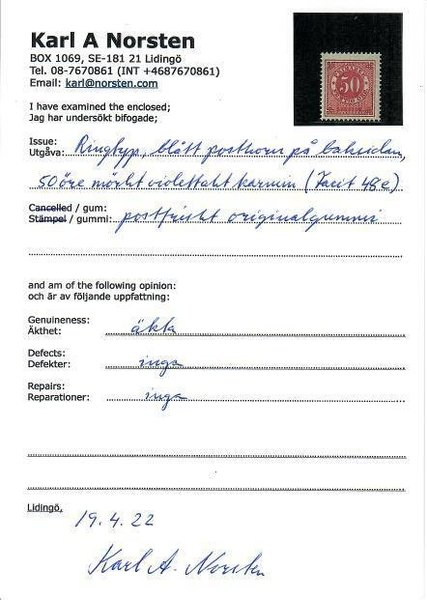 Karl A Norsten
BOX 1069, SE-181 21 Lidingö
Tel. 08-7670861 (INT +4687670861)
Email: karl@norsten.com
50
I have examined the enclosed;
Jag har undersökt bifogade;
Issue:
Utgåva: Ringtyp, blått posthorn på baksidan,
50 öre mörkt violettakt karmin (Facit 48e)
Cancelled / gum:
Stämpel / gummi: postfriskt originalgummi
and am of the following opinion:
och är av följande uppfattning:
Genuineness:
Äkthet: äkta
Defects:
Defekter: inga
Repairs:
Reparationer: inga
Lidingö,
19.4.22
Karl A. Norsten